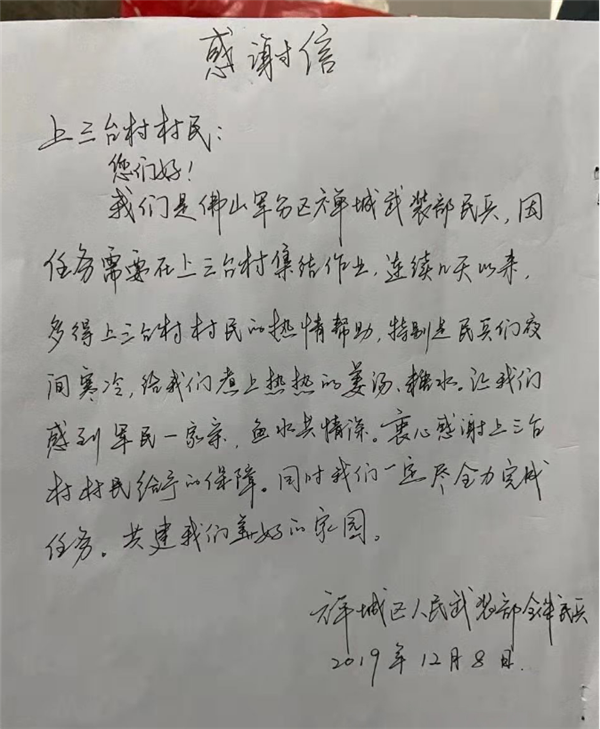 感谢信
上三台村村民：
您们好！
我们是佛山军分区禅城武装部民兵，因
任务需要在上三台村集结作业，连续几天以来，
多得上三台村村民的热情帮助，特别是民兵们夜
间寒冷，给我们煮上热热的姜汤、糖水。让我们
感到军民一家亲，鱼水共情深。衷心感谢上三台
村村民给予的保障。同时我们一定尽全力完成
任务。共建我们美好的家园。
禅城区人民武装部全体民兵
2019年12月8日.